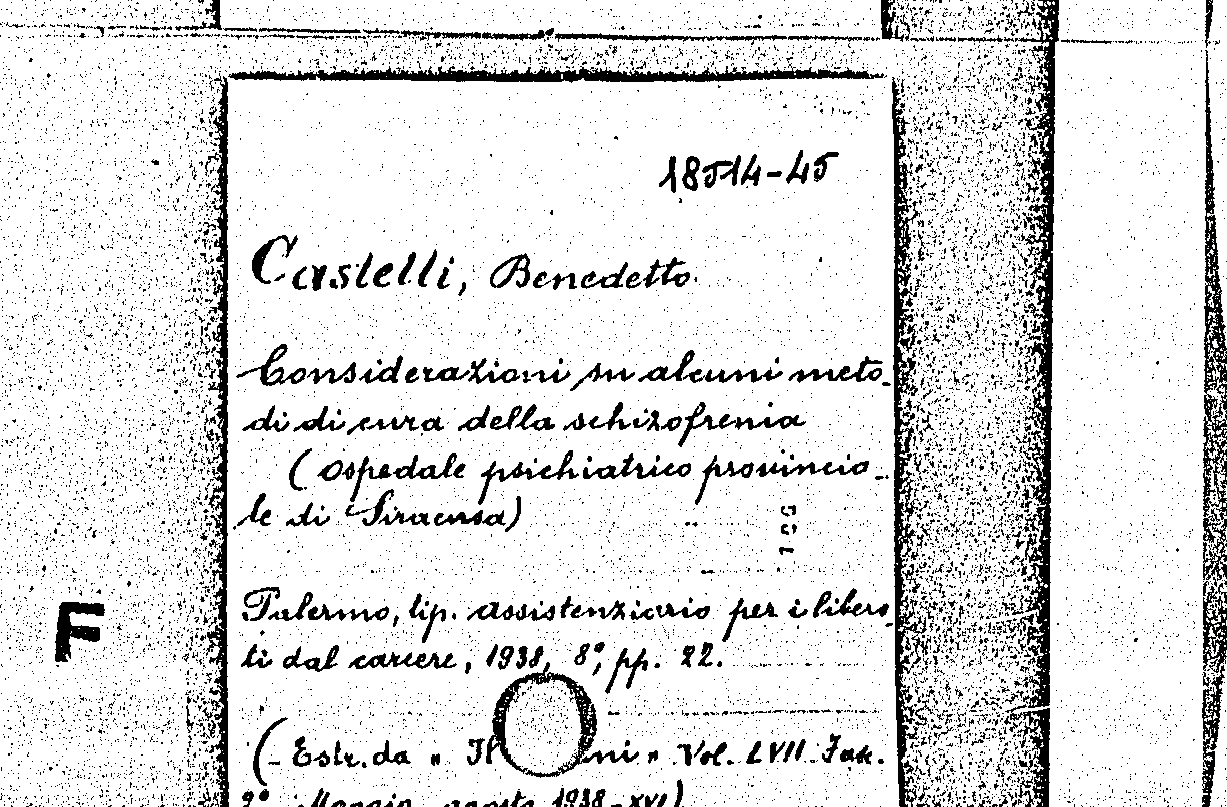 18514-45
Castelli, Benedetto
Considerazioni su alcuni meto-
di di cura della schizofrenia
(Ospedale psichiatrico provincia-
le di Siracusa)
100
F
Palermo, tip. assistenziario per i libera-
ti dal carcere, 1938, 8°, pp. 22.
(Estr. da " Il ni" Vol. LVII. Fasc.
2° Maggio agosto 1938-XVI)